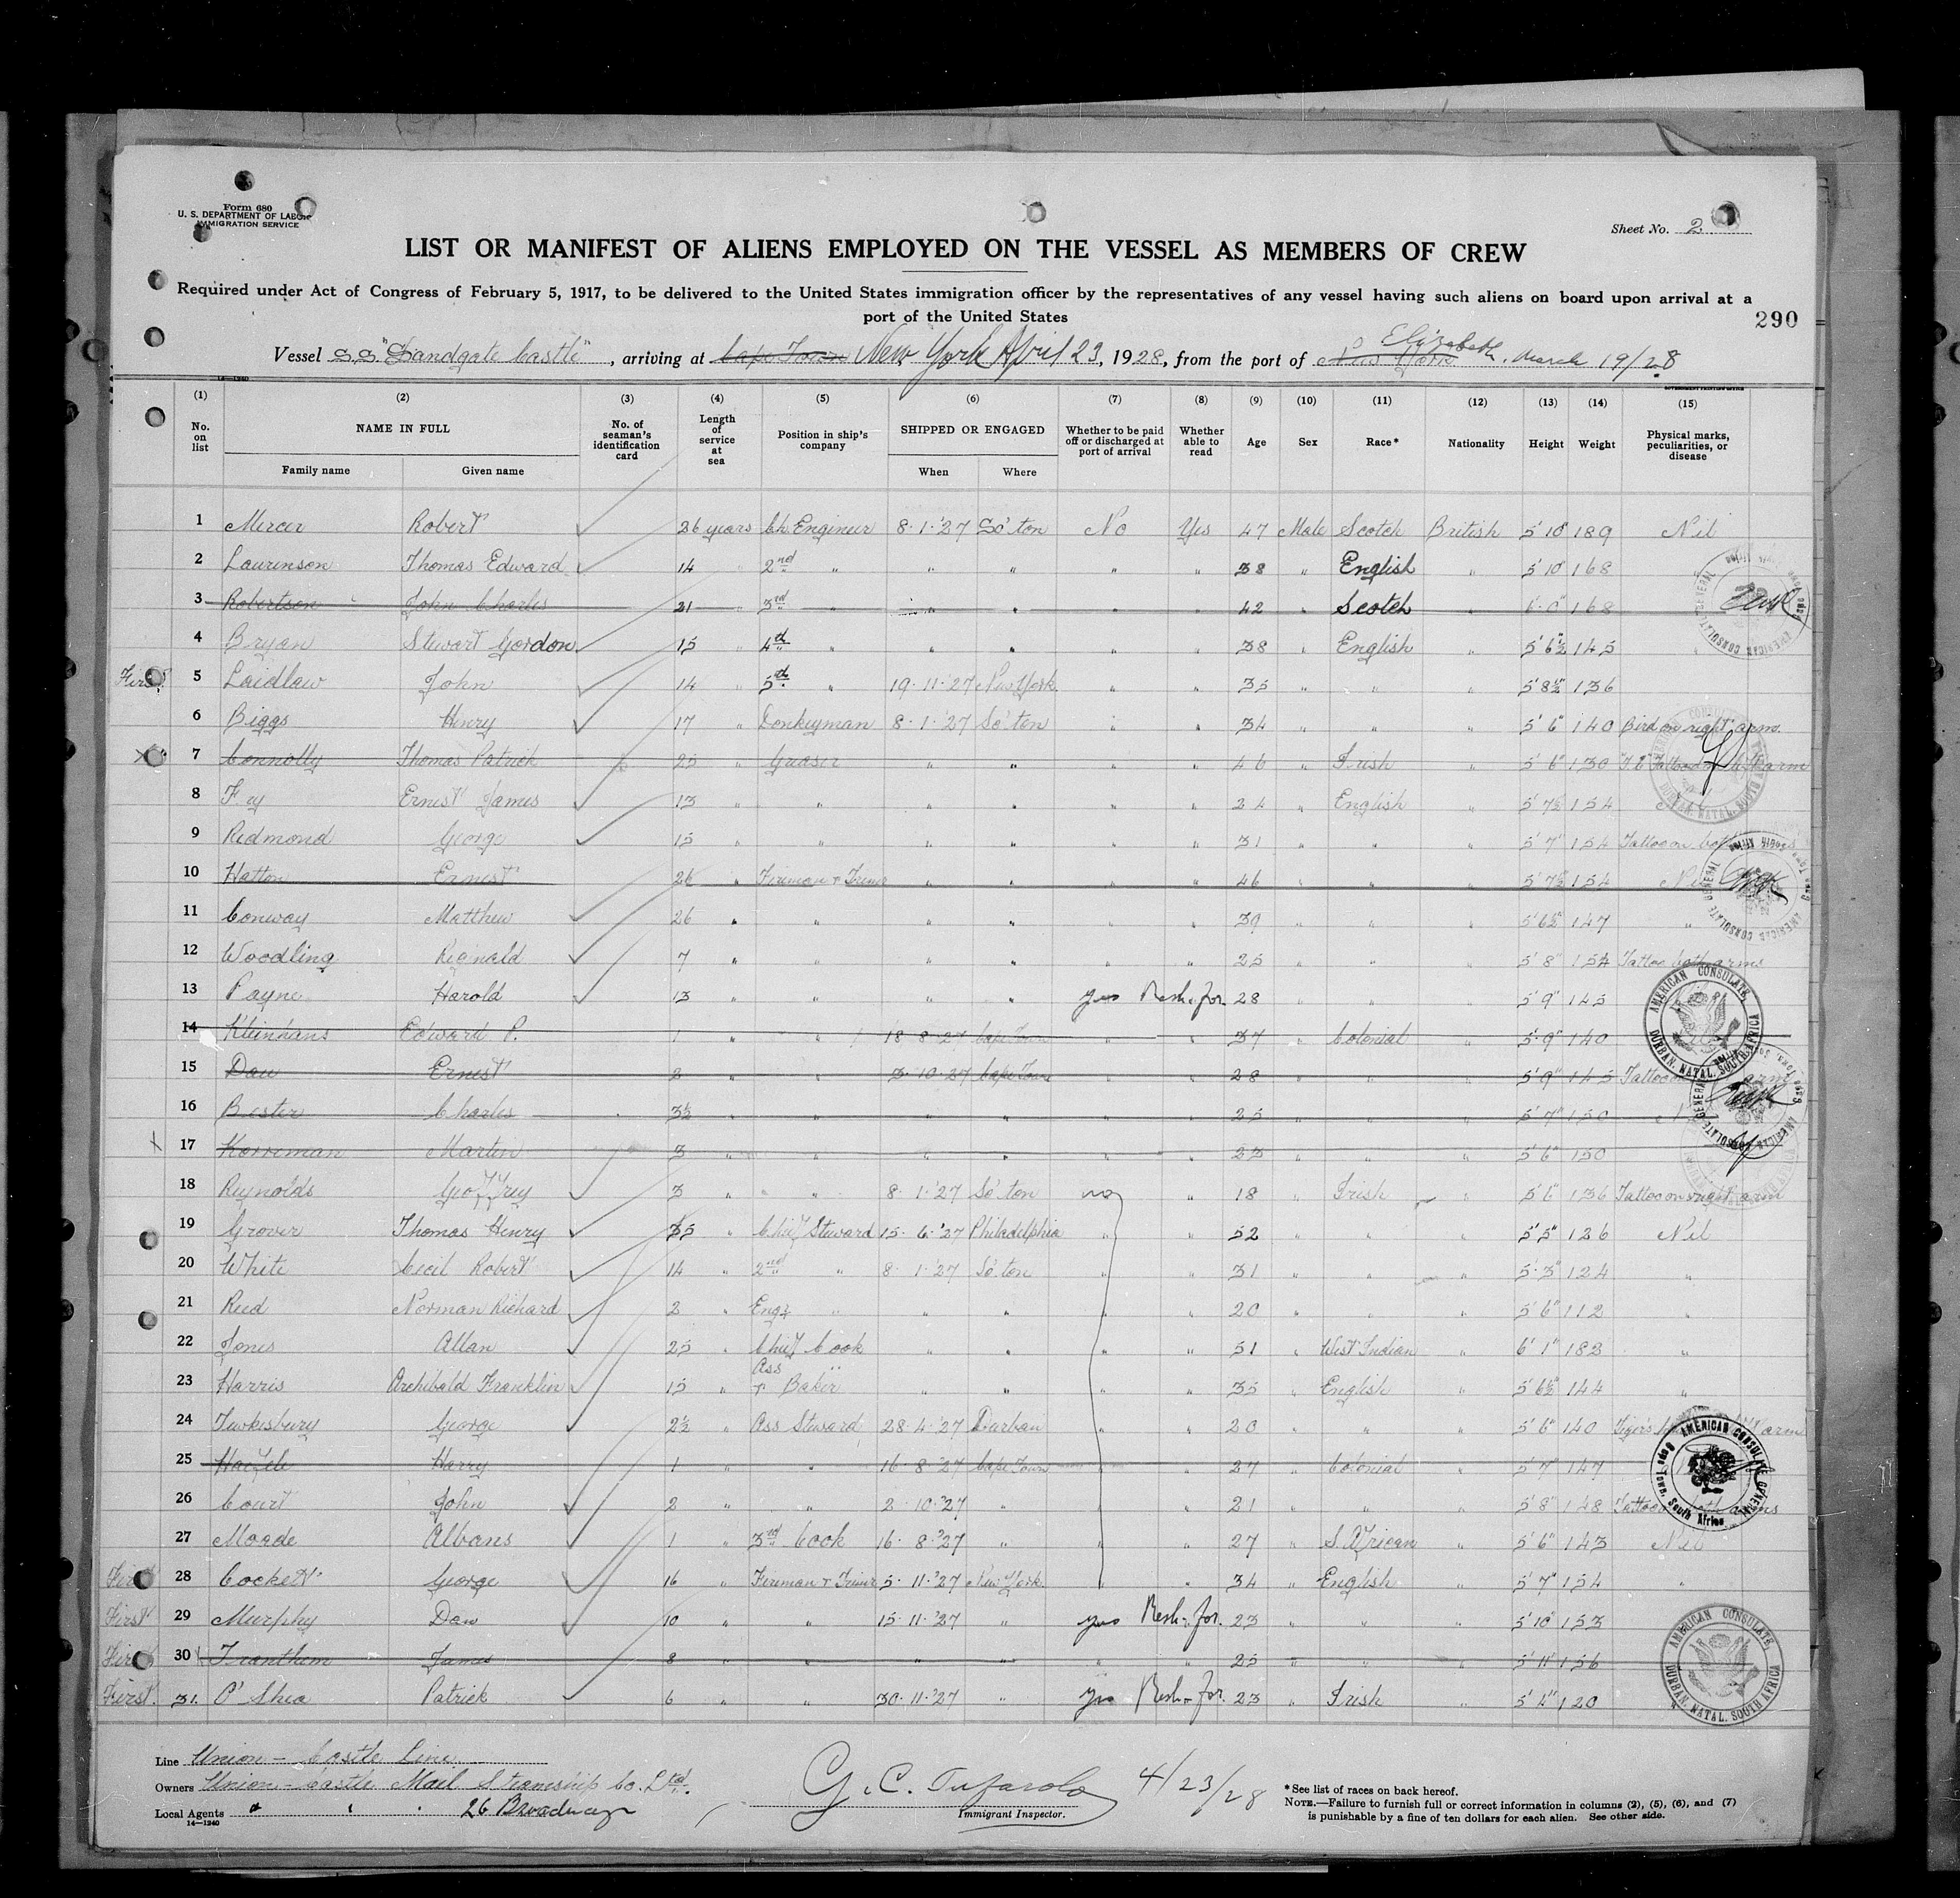 Form 680
U. S. DEPARTMENT OF LABOR
IMMIGRATION SERVICE
Sheet No. 2
LIST OR MANIFEST OF ALIENS EMPLOYED ON THE VESSEL AS MEMBERS OF CREW
Required under Act of Congress of February 5, 1917, to be delivered to the United States immigration officer by the representatives of any vessel having such aliens on board upon arrival at a
port of the United States
290
Vessel S.S. "Sandgate Castle", arriving at Cape Town New York April 23, 1928, from the port of New York P Elizabeth. March 19/28
14-1240
(1) (2) (3) (4) (5) (6) (7) (8) (9) (10) (11) (12) (13) (14) (15)
No. on list NAME IN FULL No. of seaman's identification card Length of service at sea Position in ship's company SHIPPED OR ENGAGED Whether to be paid off or discharged at port of arrival Whether able to read Age Sex Race* Nationality Height Weight Physical marks, peculiarities, or disease
Family name Given name When Where
1 Mercer Robert 26 years Ch. Engineer 8·1·'27 So'ton No Yes 47 Male Scotch British 5'10" 189 Nil
2 Laurenson Thomas Edward 14 " 2nd " " " " " 38 " English " 5'10" 168
3 Robertson John Charles 21 " 3rd " " " " " 42 " Scotch " 6'0" 168
4 Bryan Stewart Gordon 15 " 4th " " " " " 38 " English " 5'6½" 145
First 5 Laidlaw John 14 " 5th " 19·11·'27 New York " " 35 " " " 5'8½" 136
6 Biggs Henry 17 " Donkeyman 8·1·'27 So'ton " " 34 " " " 5'6" 140 Bird on right arm.
X 7 Connolly Thomas Patrick 25 " Greaser " " " " 46 " Irish " 5'6" 130 Tattoo arm
8 Fry Ernest James 13 " " " " " " 24 " English " 5'7½" 154
9 Redmond George 15 " " " " " " 31 " " " 5'7" 154 Tattoo on both
10 Hatton Ernest 26 " Fireman & Trimr " " " " 46 " " " 5'7½" 154 Nil
11 Conway Matthew 26 " " " " " " 39 " " " 5'6½" 147 "
12 Woodling Reginald 7 " " " " " " 25 " " " 5'8" 154 Tattoo both arms
13 Payne Harold 13 " " " " yes Resh. for. 28 " " " 5'9" 145
14 Kleinhans Edward P. 1 " " " 18·8·'27 Cape Town " " 37 " Colonial " 5'9" 140
15 Daw Ernest 2 " " 3·10·27 Cape Town " " 28 " " " 5'9" 145 Tattoo on arm
16 Bester Charles 3½ " " " " " " 25 " " " 5'7" 150
17 Martin 3 " " " " " " 23 " " " 5'6" 150
18 Reynolds Geoffrey 3 " " " 8·1·'27 So'ton no " 18 " Irish " 5'6" 136 Tattoo on right arm
19 Grover Thomas Henry 35 " Chief Steward 15·6·'27 Philadelphia " " 52 " " " 5'5" 126 Nil
20 White Cecil Robert 14 " 2nd " 8·1·'27 So'ton " " 31 " " " 5'3" 124 "
21 Reed Norman Richard 2 " Engr " " " " " 20 " " " 5'6" 112 "
22 Jones Allan 25 " Chief Cook " " " " 51 " West Indian " 6'1" 182 "
23 Harris Archibald Franklin 15 " Ass " & Baker " " " " 35 " English " 5'6½" 144 "
24 Tewkesbury George 2½ " Ass Steward 28·4·'27 Durban " " 20 " " " 5'6" 140 Tiger's arm
25 Harry 1 " " 16·8·'27 Cape Town " " 27 " Colonial " 5'7" 147
26 Court John 2 " " 2·10·'27 " " " 21 " " " 5'8" 148 Tattoo both arms
27 Moade Albans 1 " 3rd Cook 16·8·'27 " " " 27 " S. African " 5'6" 143 Nil
First 28 Cockett George 16 " Fireman & Trimr 5·11·'27 New York. " " 34 " English " 5'7" 154 "
First 29 Murphy Dan 10 " " 15·11·'27 " yes Resh. for. 23 " " " 5'10" 153
First 30 Tranthem James 8 " " " " " " 25 " " " 5'11" 156
First. 31. O'Shea Patrick 6 " " 30·11·'27 " yes Resh. for. 23 " Irish " 5'4" 120
AMERICAN CONSULATE, DURBAN, NATAL, SOUTH AFRICA
AMERICAN CONSULATE GENERAL Cape Town, South Africa
AMERICAN CONSULATE, DURBAN, NATAL, SOUTH AFRICA
Line Union-Castle Line
Owners Union-Castle Mail Steamship Co. Ltd.
Local Agents " " " 26 Broadway
14-1240
G. C. Tufarolo 4/23/28
Immigrant Inspector.
*See list of races on back hereof.
NOTE.—Failure to furnish full or correct information in columns (2), (5), (6), and (7)
is punishable by a fine of ten dollars for each alien. See other side.